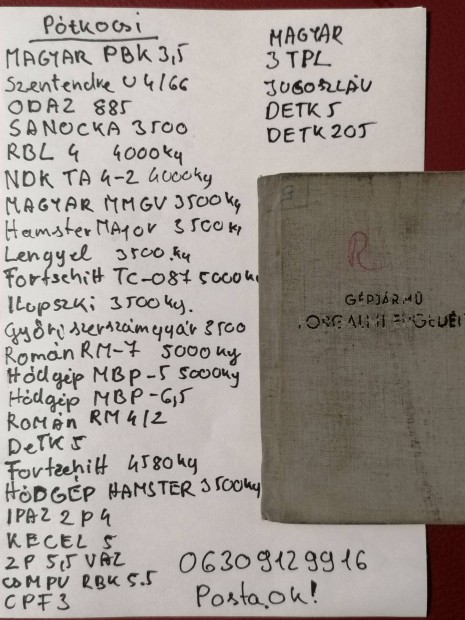 Pótkocsi
MAGYAR PBK 3,5
Szentendre U 4/66
ODAZ 885
SANOCKA 3500
RBL 4 4000kg
NDK TA 4-2 4000kg
MAGYAR MMGV 3500kg
Hamster MAJOV 3500k
Lengyel 3500.kg
Fortschitt TC-087 5000k
Ilopszki 3500kg.
Győri szerszámgyár 3500
Román RM-7 5000kg
Hódgép MBP-5 5000kg
Hódgép MBP-6,5
ROMÁN RM 4/2
DeTK 5
Fortzchitt 4580kg
HÓDGÉP HAMSTER 3500kg
IPAZ 2 P 4
KECEL 5
2P 5,5 VAZ
COMPU RBK 5.5
CPF 3
MAGYAR
3 TPL
JUGOSZLÁV
DETK 5
DETK 205
R
GÉPJÁRMŰ
FORGALMI ENGEDÉL
06309129916
Posta.ok!